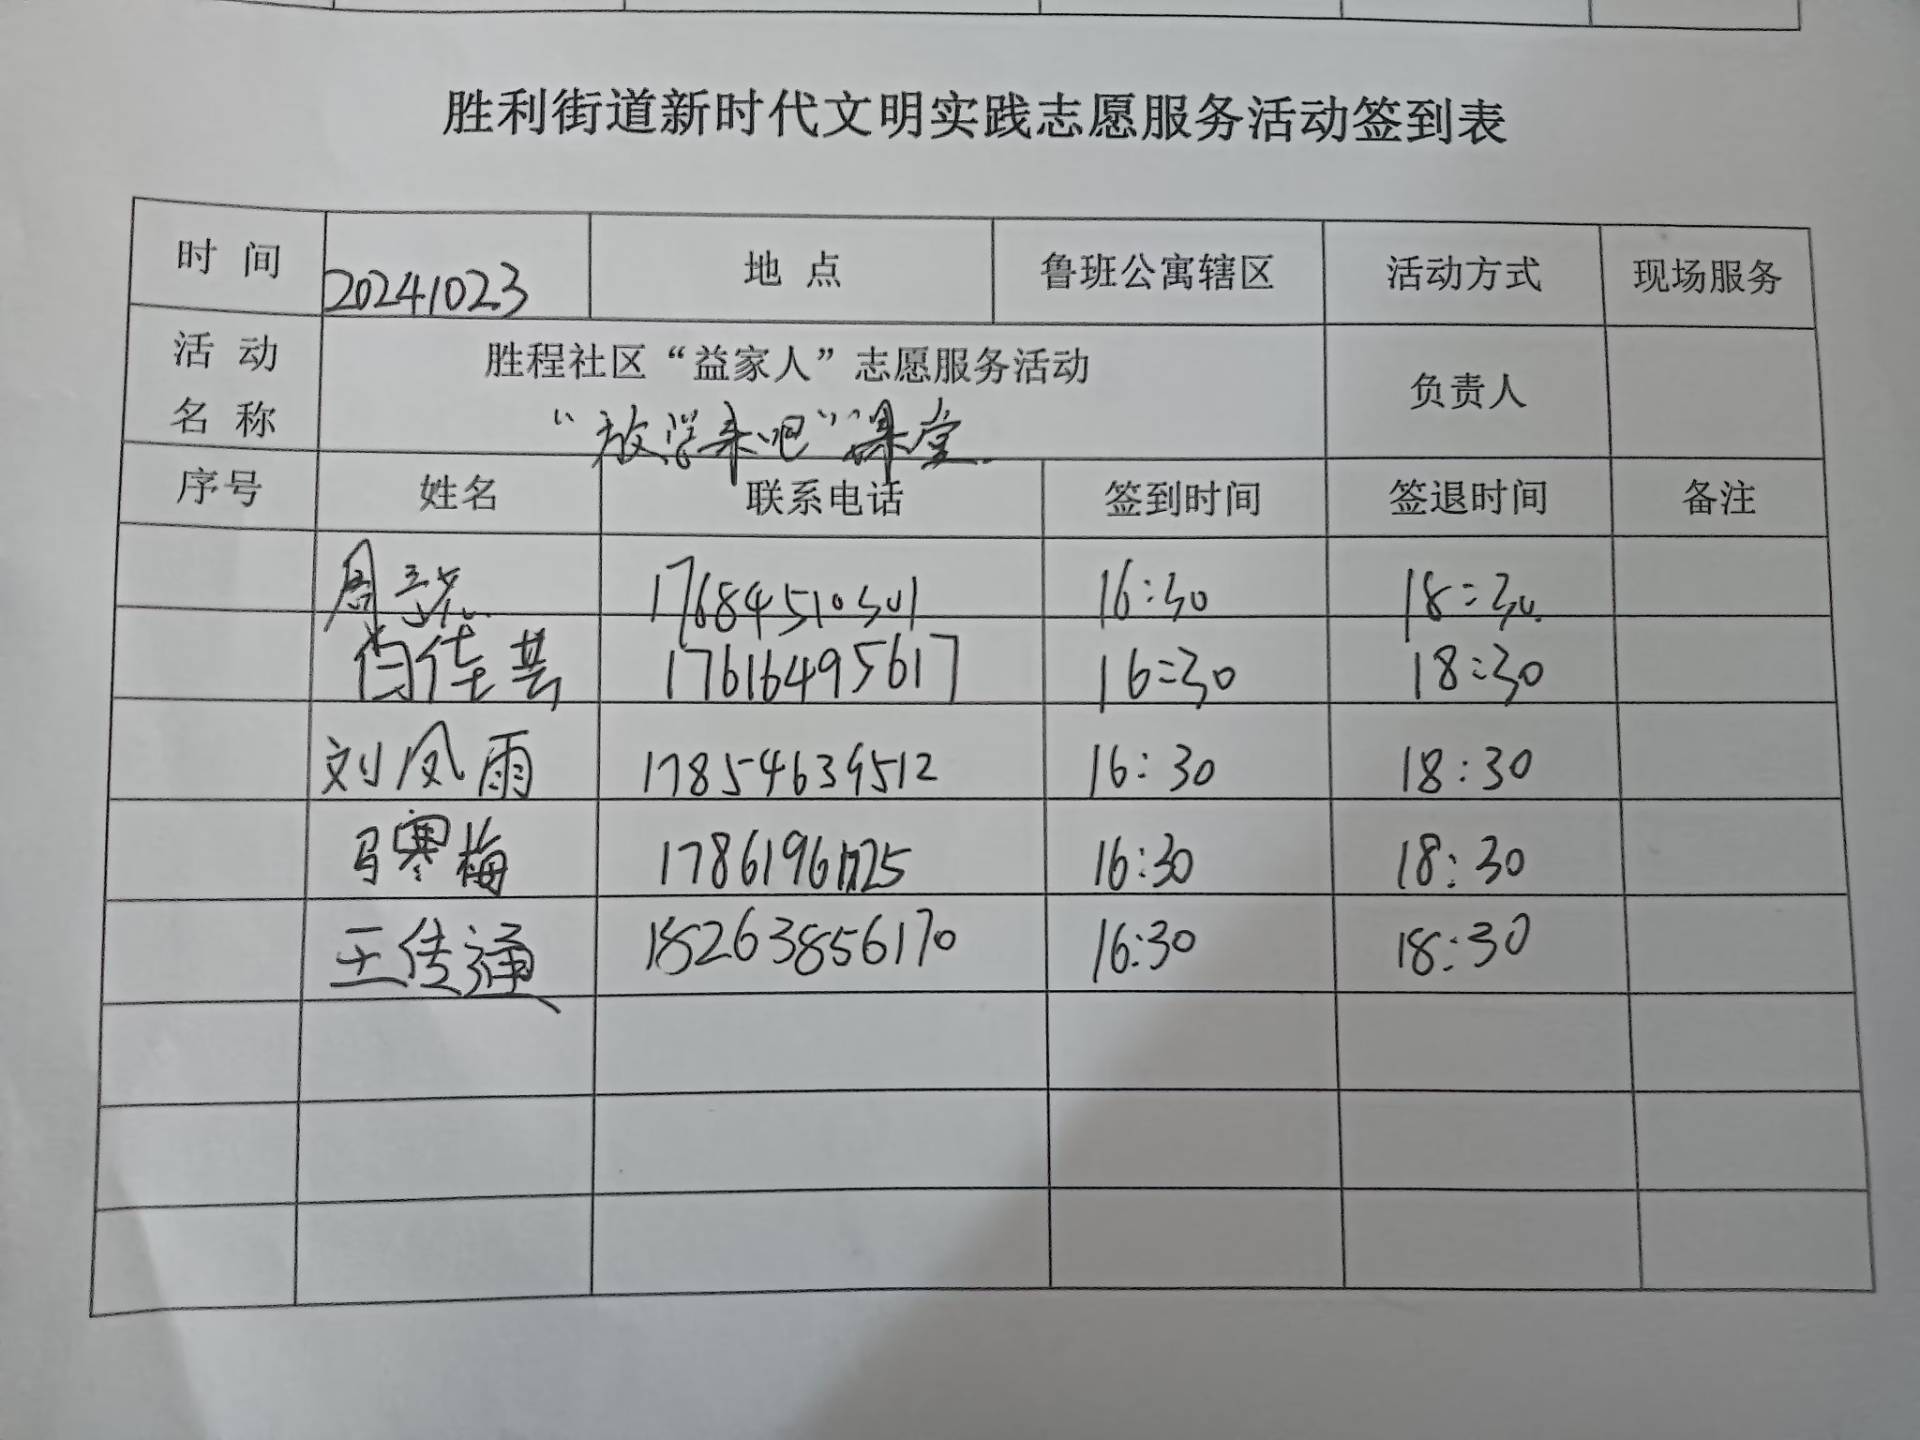 胜利街道新时代文明实践志愿服务活动签到表
时 间 20241023 地 点 鲁班公寓辖区 活动方式 现场服务
活 动 名 称 胜程社区“益家人”志愿服务活动 负责人
“放学来吧”课堂
序号 姓名 联系电话 签到时间 签退时间 备注
周 17684510301 16:30 18:30
17616495617 16:30 18:30
刘凤雨 17854639512 16:30 18:30
马寒梅 16:30 18:30
王传通 18263856170 16:30 18:30